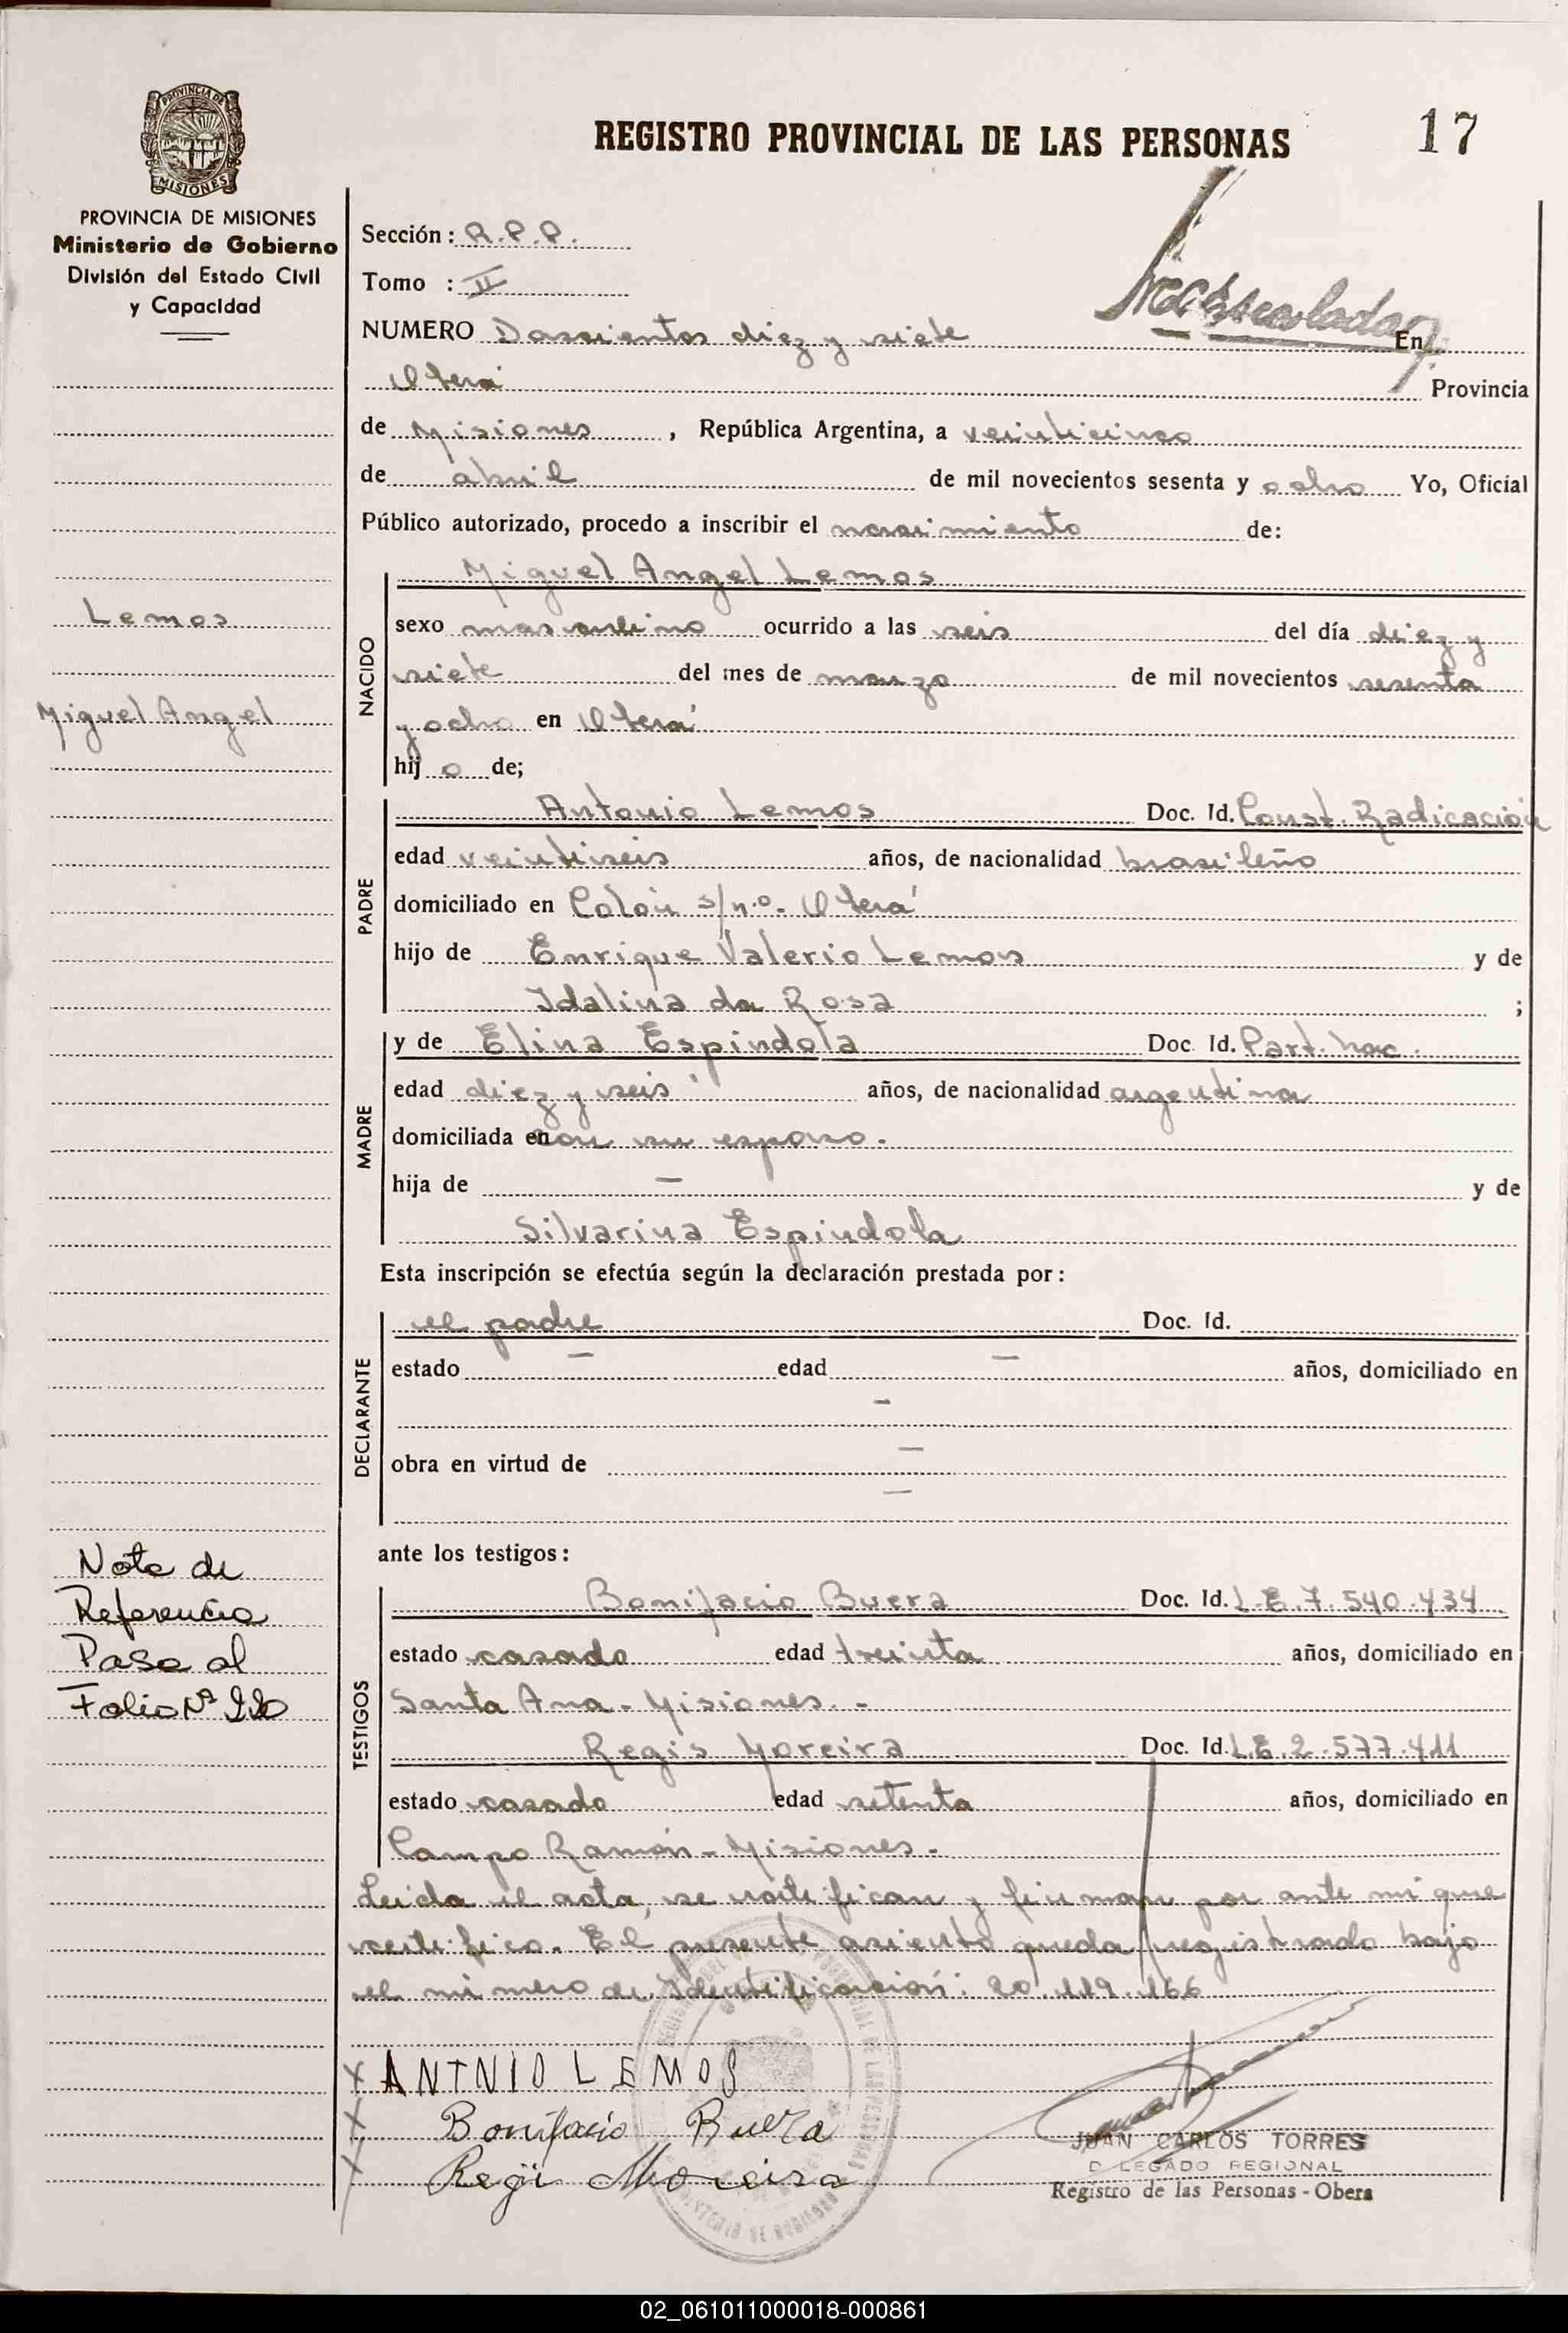 REGISTRO PROVINCIAL DE LAS PERSONAS
17
PROVINCIA DE MISIONES
PROVINCIA DE MISIONES
Ministerio de Gobierno
División del Estado Civil
y Capacidad
Sección: R.P.P.
Tomo : II
NUMERO Doscientos diez y siete En
Oberá Provincia
de Misiones, República Argentina, a veinticinco
de abril de mil novecientos sesenta y ocho Yo, Oficial
Público autorizado, procedo a inscribir el nacimiento de:
Lemos
Miguel Angel
NACIDO
Miguel Angel Lemos
sexo masculino ocurrido a las seis del día diez y
siete del mes de marzo de mil novecientos sesenta
y ocho en Oberá
hij o de;
PADRE
Antonio Lemos Doc. Id. Const. Radicación
edad veintiseis años, de nacionalidad brasileño
domiciliado en Colón s/n.o. Oberá
hijo de Enrique Valerio Lemos y de
Idalina da Rosa ;
MADRE
y de Elina Espindola Doc. Id. Part. Nac.
edad diez y seis años, de nacionalidad argentina
domiciliada en con su esposo.
hija de — y de
Silvarina Espindola
Esta inscripción se efectúa según la declaración prestada por:
DECLARANTE
el padre Doc. Id.
estado — edad — años, domiciliado en
—
obra en virtud de —
—
ante los testigos:
Nota de
Referencia
Pasa al
Folio Nº 220
TESTIGOS
Bonifacio Buera Doc. Id. L.E. 7.540.434
estado casado edad treinta años, domiciliado en
Santa Ana - Misiones. -
Regis Moreira Doc. Id. L.E. 2.577.411
estado casado edad setenta años, domiciliado en
Campo Ramón - Misiones. -
Leida el acta, se ratifican y firman por ante mi que
certifico. El presente asiento queda registrado bajo
el número de Identificación: 20.119.166
X ANTNIO LEMOS
X Bonifacio Buera
X Regi Moreira
JUAN CARLOS TORRES
DELEGADO REGIONAL
Registro de las Personas - Obera
02_061011000018-000861